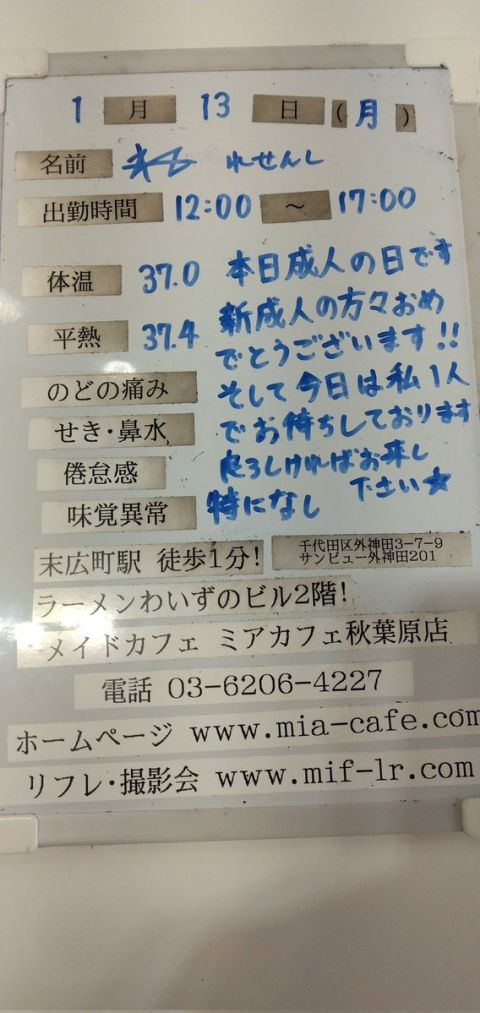 1月13日(月)
名前 れせんし
出勤時間 12:00 ～ 17:00
体温 37.0 本日成人の日です
平熱 37.4 新成人の方々おめ
でとうございます!!
のどの痛み そして今日は私1人
せき・鼻水 でお待ちしております
倦怠感 良ろしければお来し
下さい☆
味覚異常 特になし
末広町駅 徒歩1分! 千代田区外神田3-7-9
サンビュー外神田201
ラーメンわいずのビル2階!
メイドカフェ ミアカフェ秋葉原店
電話 03-6206-4227
ホームページ www.mia-cafe.com
リフレ・撮影会 www.mif-lr.com